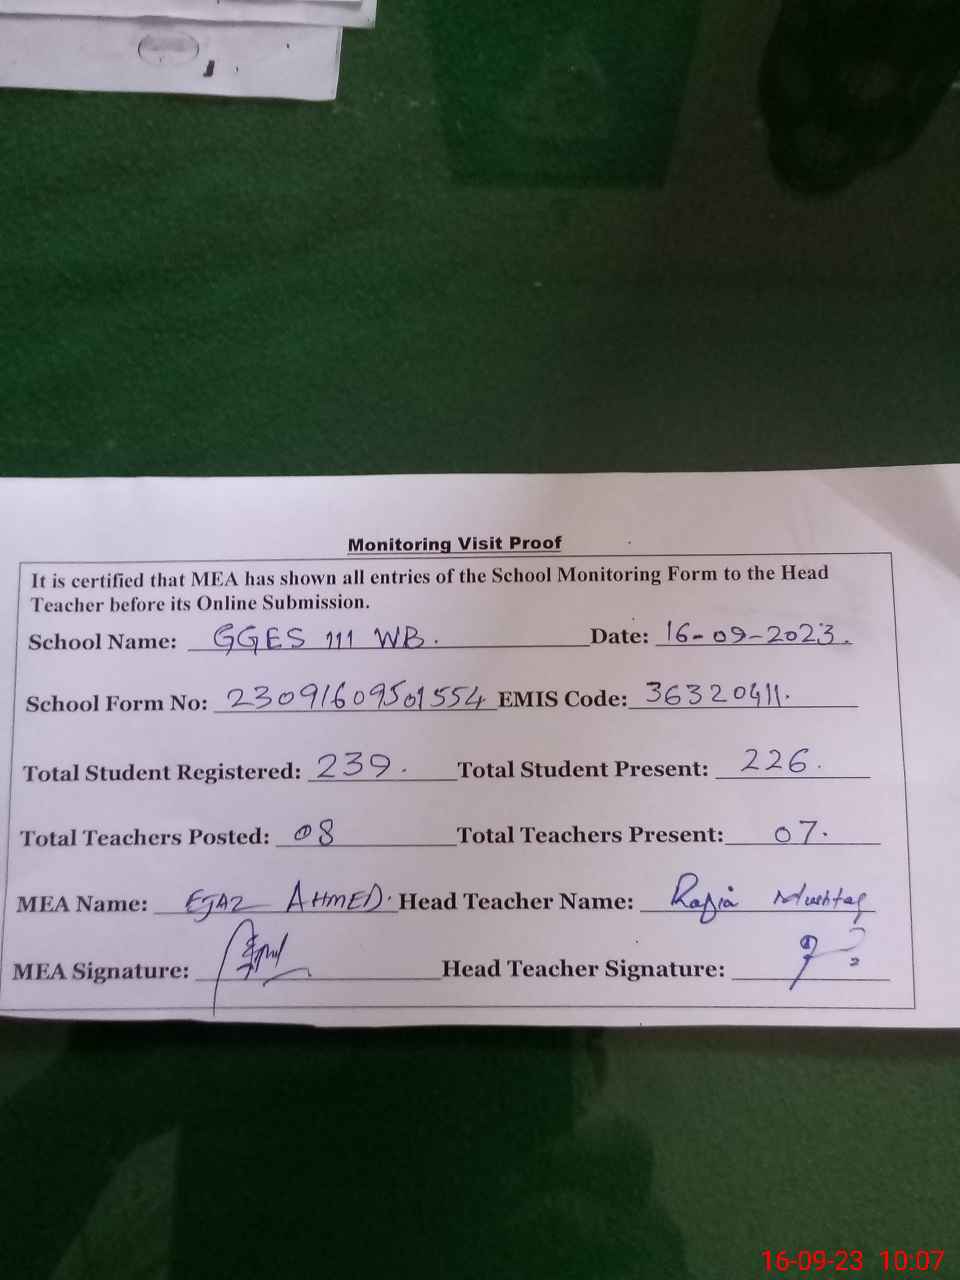 Monitoring Visit Proof
It is certified that MEA has shown all entries of the School Monitoring Form to the Head
Teacher before its Online Submission.
School Name: GGES 111 WB. Date: 16-09-2023.
School Form No: 23091609501554 EMIS Code: 36320411.
Total Student Registered: 239. Total Student Present: 226.
Total Teachers Posted: 08 Total Teachers Present: 07.
MEA Name: EJAZ AHMED. Head Teacher Name: Rafia Mushtaq
MEA Signature: Head Teacher Signature:
16-09-23 10:07